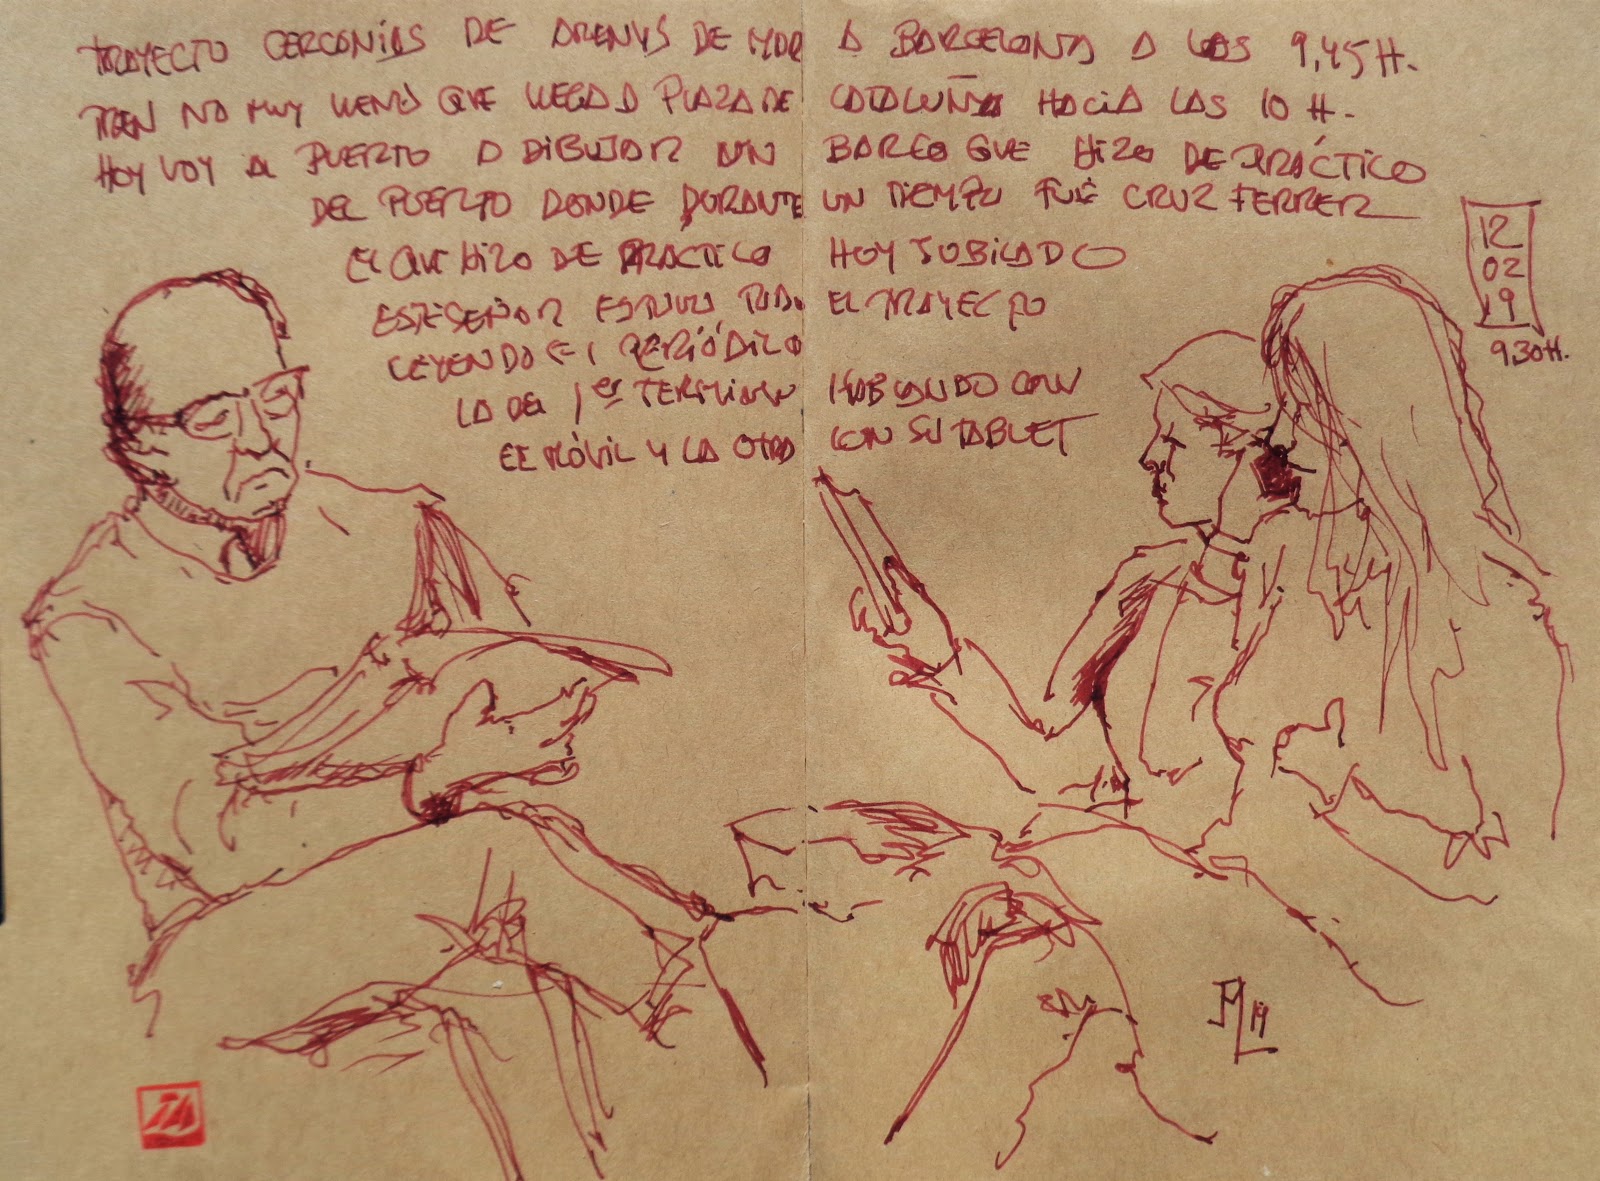 TRAYECTO CERCANÍAS DE ARENYS DE MAR A BARCELONA A LAS 9,45 H.
TREN NO MUY LLENO QUE LLEGA A PLAZA DE CATALUÑA HACIA LAS 10 H.
HOY VOY AL PUERTO A DIBUJAR UN BARCO QUE HIZO DE PRÁCTICO
DEL PUERTO DONDE DURANTE UN TIEMPO FUÉ CRUZ FERRER
EL QUE HIZO DE PRACTICO HOY JUBILADO
ESTE SEÑOR ESTUVO TODO EL TRAYECTO
LEYENDO EL PERIÓDICO
LA DEL 1er TERMINO HABLANDO CON
EL MÓVIL Y LA OTRA CON SU TABLET
12
02
19
9,30 H.